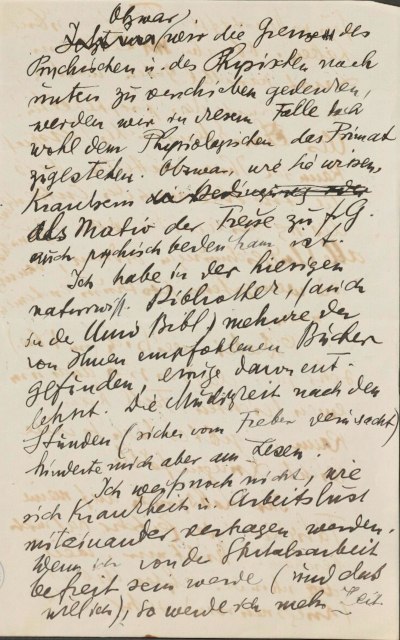 Obzwar
wir die Grenzen des
Psychischen u. des Physischen nach
unten zu verschieben gedenken,
werden wir in diesem Falle doch
wohl dem Physiologischen das Primat
zugestehen. Obzwar, wie Sie wissen,
Kranksein
als Motiv der Reise zu F. G.
auch psychisch bedeutsam ist.
Ich habe in der hiesigen
naturwiss. Bibliothek, (auch
in der Univ Bibl.) mehrere der
von Ihnen empfohlenen Bücher
gefunden, einige davon ent-
lehnt. Die Müdigkeit nach den
Stunden (sicher vom Fieber verursacht)
hinderte mich aber am Lesen.
Ich weiß noch nicht, wie
sich Krankheit u. Arbeitslust
miteinander vertragen werden.
Wenn ich von der Spitalsarbeit
befreit sein werde (und das
will ich), so werde ich mehr Zeit